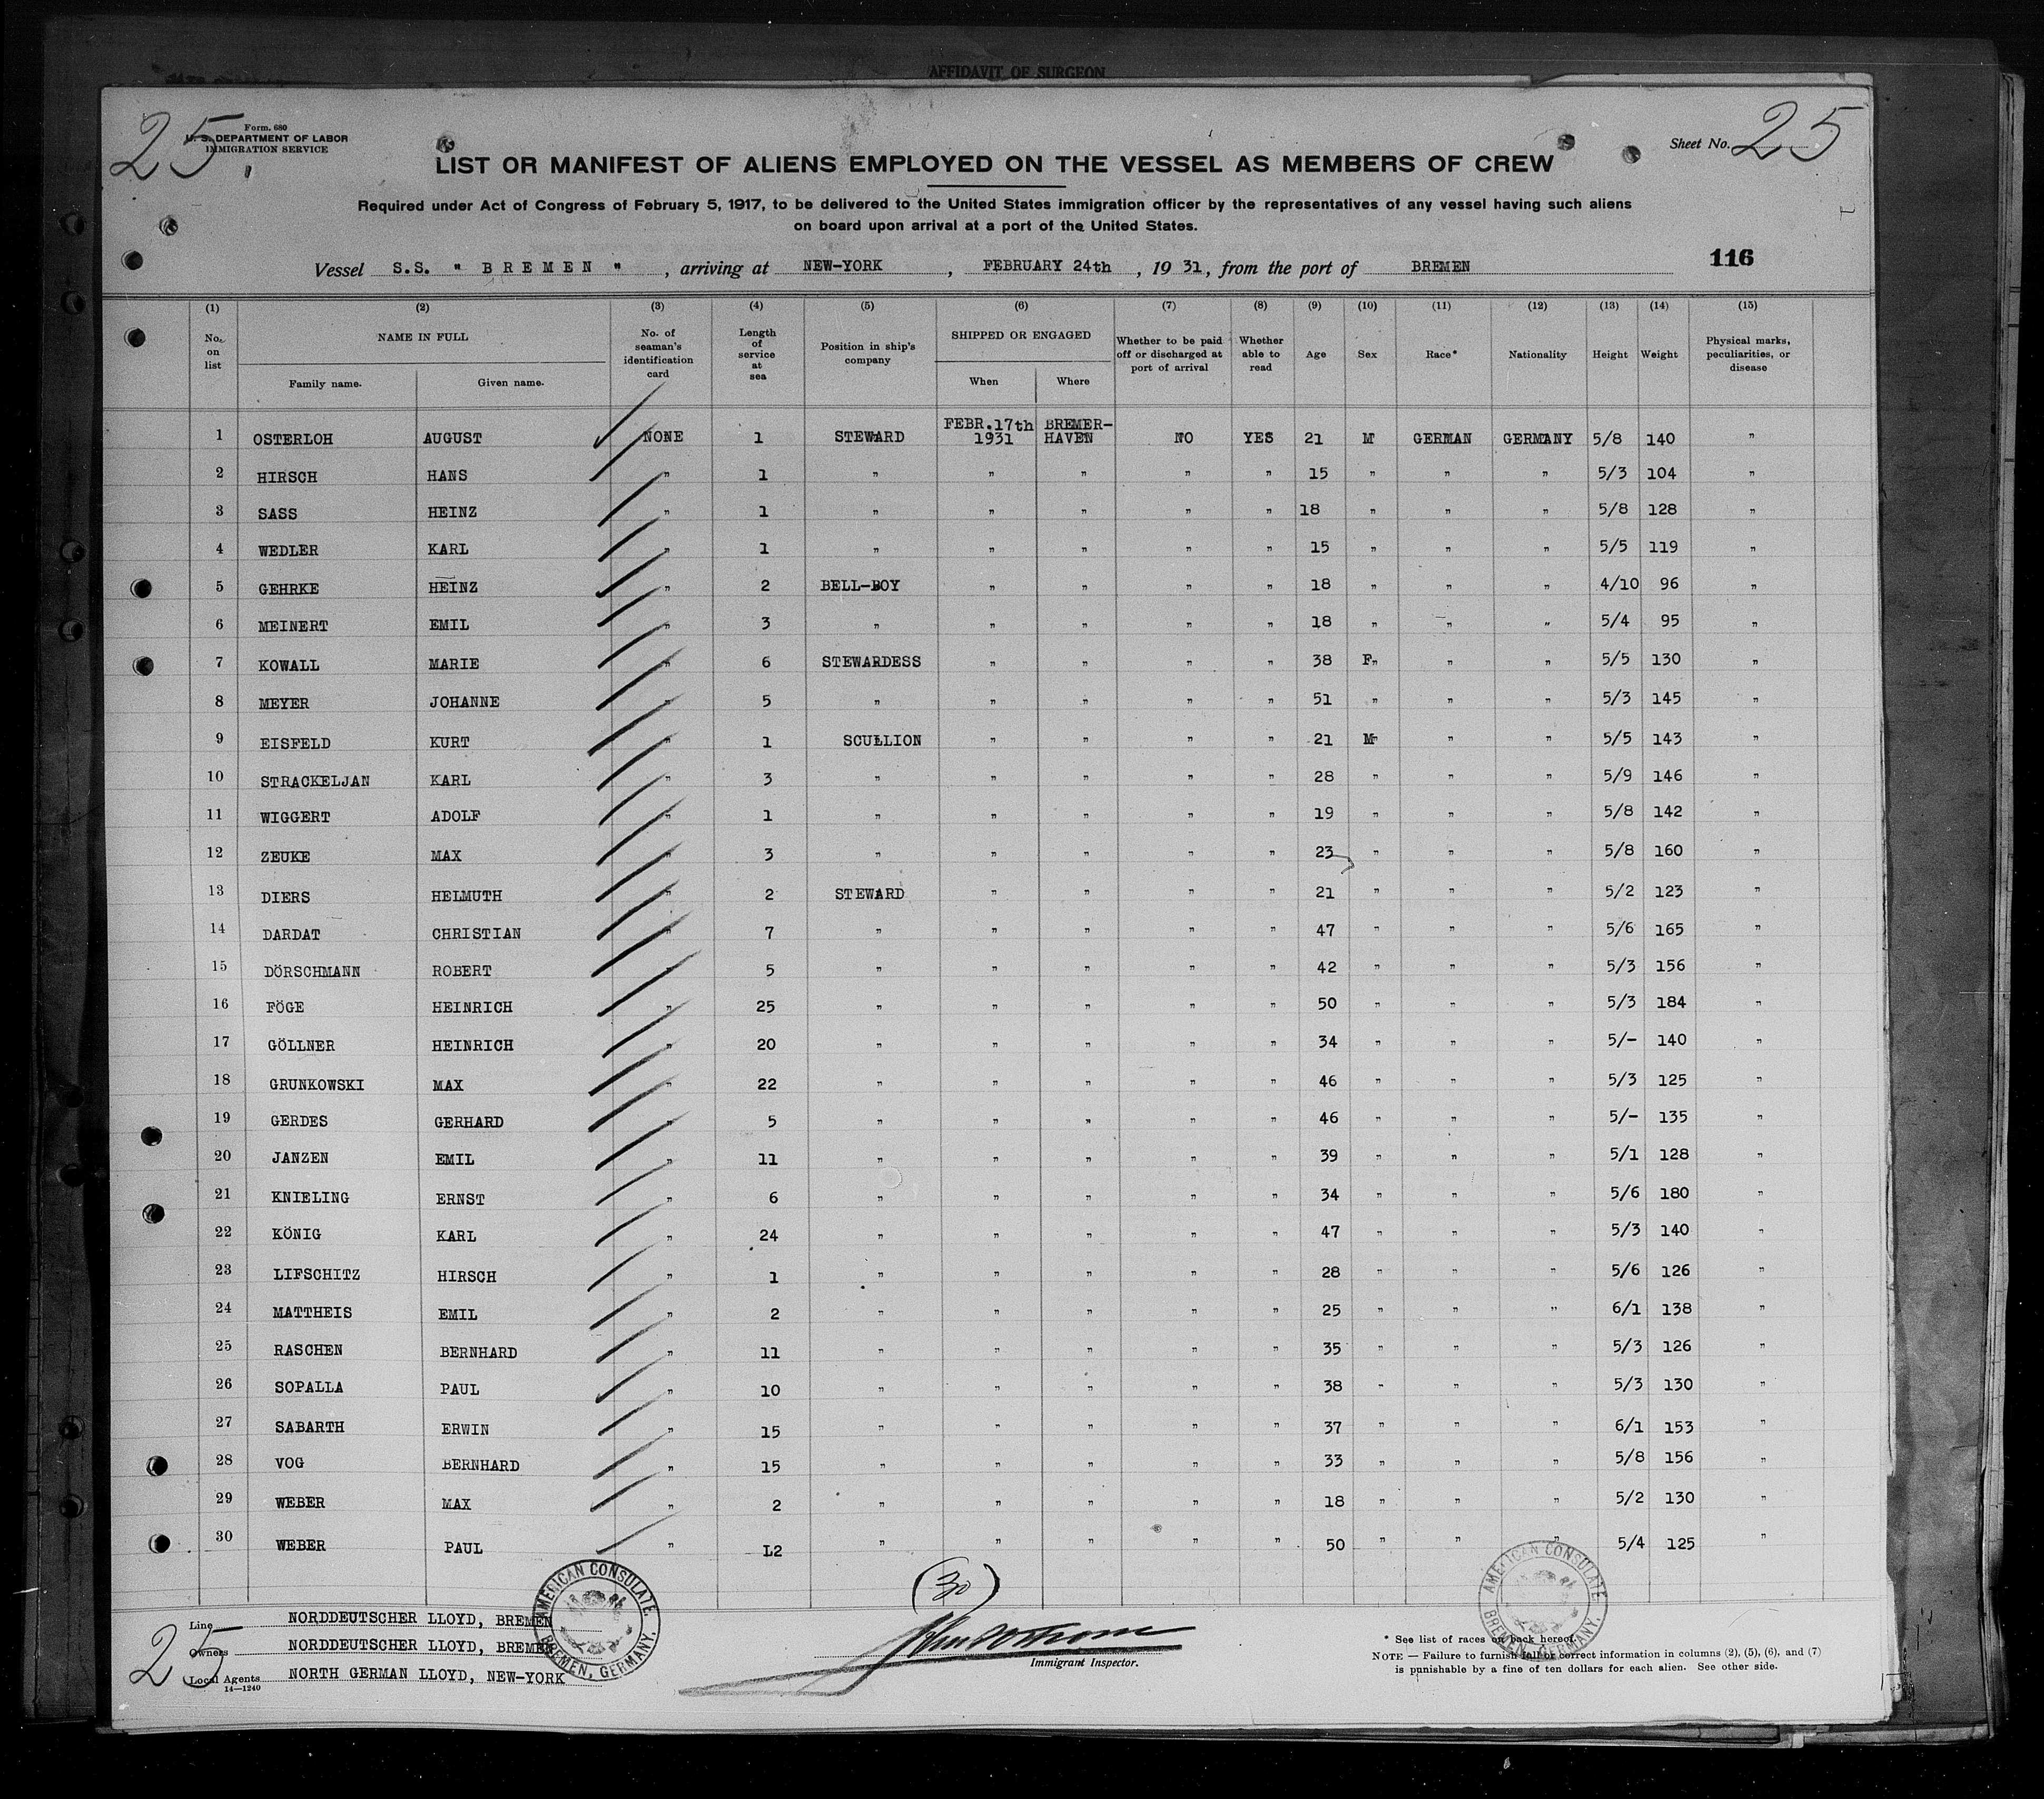 AFFIDAVIT OF SURGEON
25.
Form. 680
U. S. DEPARTMENT OF LABOR
IMMIGRATION SERVICE
Sheet No. 25
LIST OR MANIFEST OF ALIENS EMPLOYED ON THE VESSEL AS MEMBERS OF CREW
Required under Act of Congress of February 5, 1917, to be delivered to the United States immigration officer by the representatives of any vessel having such aliens
on board upon arrival at a port of the United States.
116
Vessel S.S. " BREMEN ", arriving at NEW-YORK, FEBRUARY 24th, 1931, from the port of BREMEN
(1) (2) (3) (4) (5) (6) (7) (8) (9) (10) (11) (12) (13) (14) (15)
No. on list NAME IN FULL Family name. Given name. No. of seaman's identification card Length of service at sea Position in ship's company SHIPPED OR ENGAGED When Where Whether to be paid off or discharged at port of arrival Whether able to read Age Sex Race* Nationality Height Weight Physical marks, peculiarities, or disease
1 OSTERLOH AUGUST NONE 1 STEWARD FEBR.17th 1931 BREMER-HAVEN NO YES 21 M GERMAN GERMANY 5/8 140 "
2 HIRSCH HANS " 1 " " " " " 15 " " " 5/3 104 "
3 SASS HEINZ " 1 " " " " " 18 " " " 5/8 128 "
4 WEDLER KARL " 1 " " " " " 15 " " " 5/5 119 "
5 GEHRKE HEINZ " 2 BELL-BOY " " " " 18 " " " 4/10 96 "
6 MEINERT EMIL " 3 " " " " " 18 " " " 5/4 95 "
7 KOWALL MARIE " 6 STEWARDESS " " " " 38 F" " " 5/5 130 "
8 MEYER JOHANNE " 5 " " " " " 51 " " " 5/3 145 "
9 EISFELD KURT " 1 SCULLION " " " " 21 M" " " 5/5 143 "
10 STRACKELJAN KARL " 3 " " " " " 28 " " " 5/9 146 "
11 WIGGERT ADOLF " 1 " " " " " 19 " " " 5/8 142 "
12 ZEUKE MAX " 3 " " " " " 23 " " " 5/8 160 "
13 DIERS HELMUTH " 2 STEWARD " " " " 21 " " " 5/2 123 "
14 DARDAT CHRISTIAN " 7 " " " " " 47 " " " 5/6 165 "
15 DÖRSCHMANN ROBERT " 5 " " " " " 42 " " " 5/3 156 "
16 FÖGE HEINRICH " 25 " " " " " 50 " " " 5/3 184 "
17 GÖLLNER HEINRICH " 20 " " " " " 34 " " " 5/- 140 "
18 GRUNKOWSKI MAX " 22 " " " " " 46 " " " 5/3 125 "
19 GERDES GERHARD " 5 " " " " " 46 " " " 5/- 135 "
20 JANZEN EMIL " 11 " " " " " 39 " " " 5/1 128 "
21 KNIELING ERNST " 6 " " " " " 34 " " " 5/6 180 "
22 KÖNIG KARL " 24 " " " " " 47 " " " 5/3 140 "
23 LIFSCHITZ HIRSCH " 1 " " " " " 28 " " " 5/6 126 "
24 MATTHEIS EMIL " 2 " " " " " 25 " " " 6/1 138 "
25 RASCHEN BERNHARD " 11 " " " " " 35 " " " 5/3 126 "
26 SOPALLA PAUL " 10 " " " " " 38 " " " 5/3 130 "
27 SABARTH ERWIN " 15 " " " " " 37 " " " 6/1 153 "
28 VOG BERNHARD " 15 " " " " " 33 " " " 5/8 156 "
29 WEBER MAX " 2 " " " " " 18 " " " 5/2 130 "
30 WEBER PAUL " L2 " " " " " 50 " " " 5/4 125 "
(30)
25
Line NORDDEUTSCHER LLOYD, BREMEN
Owners NORDDEUTSCHER LLOYD, BREMEN
Local Agents NORTH GERMAN LLOYD, NEW-YORK
14—1240
AMERICAN CONSULATE. BREMEN, GERMANY.
Immigrant Inspector.
AMERICAN CONSULATE BREMEN, GERMANY.
* See list of races on back hereof.
NOTE — Failure to furnish full or correct information in columns (2), (5), (6), and (7)
is punishable by a fine of ten dollars for each alien. See other side.